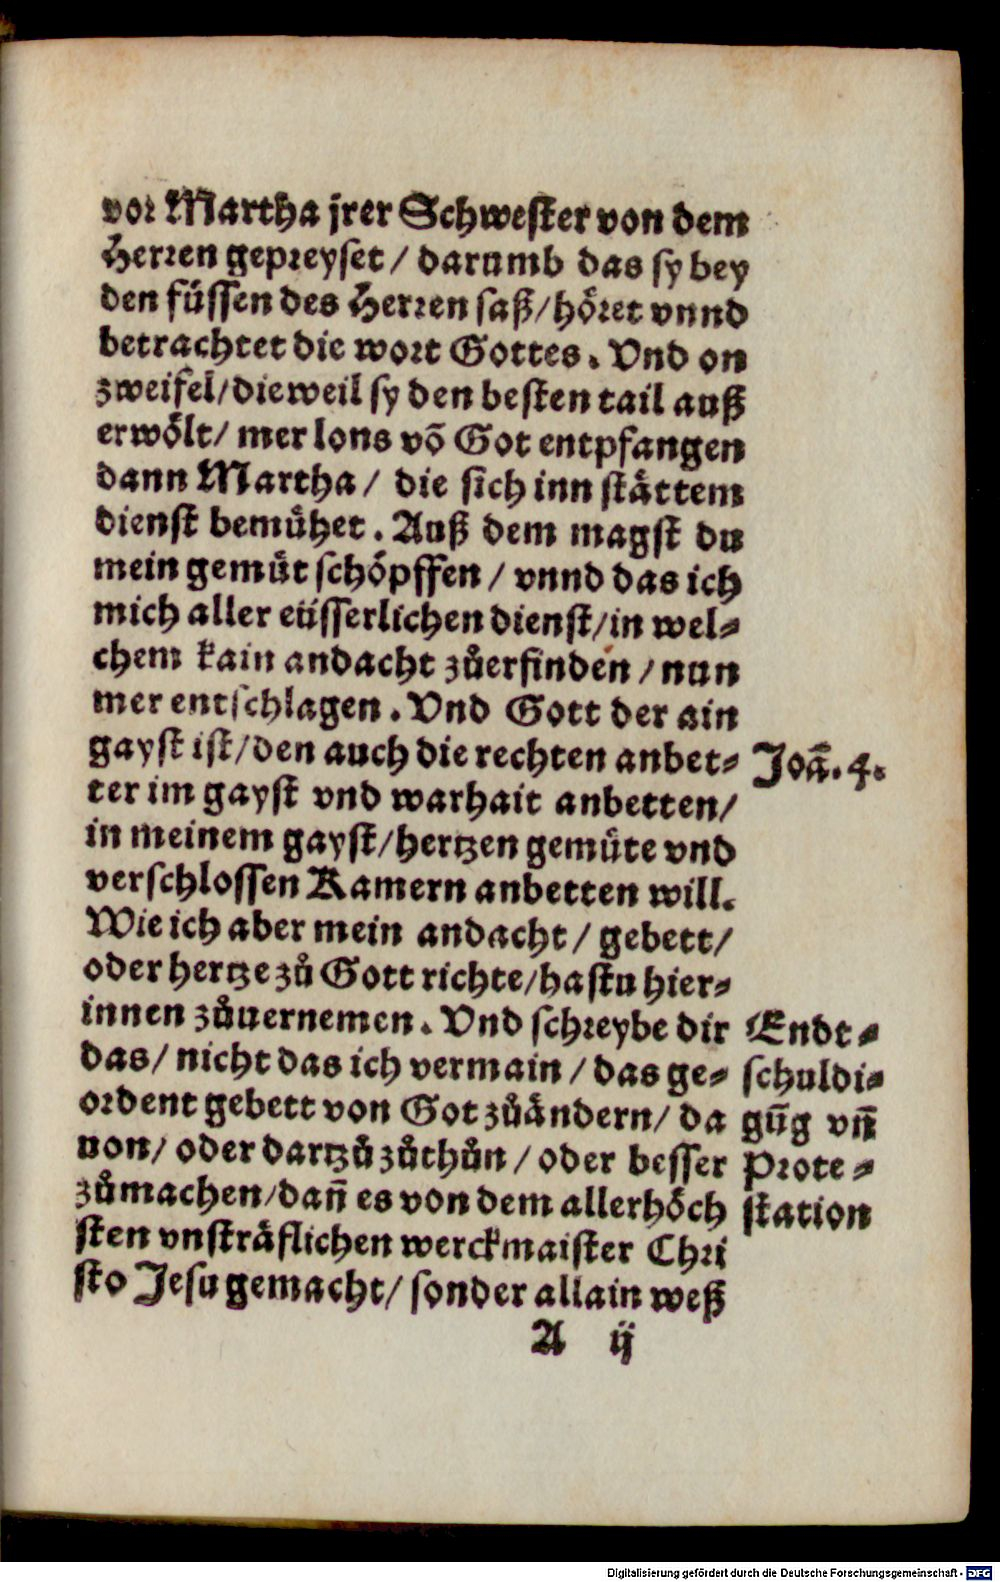 vor Martha jrer Schwester von dem
Herren gepreyset / darumb das sy bey
den füssen des Herren saß / höret vnnd
betrachtet die wort Gottes . Vnd on
zweifel / dieweil sy den besten tail auß
erwölt / mer lons võ Got entpfangen
dann Martha / die sich inn stättem
dienst bemühet . Auß dem magst du
mein gemüt schöpffen / vnnd das ich
mich aller eüsserlichen dienst / in wel⸗
chem kain andacht zůerfinden / nun
mer entschlagen . Vnd Gott der ain
gayst ist / den auch die rechten anbet⸗
ter im gayst vnd warhait anbetten /
in meinem gayst / hertzen gemüte vnd
verschlossen Kamern anbetten will.
Wie ich aber mein andacht / gebett /
oder hertze zů Gott richte / hastu hier⸗
innen zůuernemen . Vnd schreybe dir
das / nicht das ich vermain / das ge⸗
ordent gebett von Got zůändern / da
uon / oder dartzů zůthůn / oder besser
zůmachen / dañ es von dem allerhöch
sten vnsträflichen werckmaister Chri
sto Jesu gemacht / sonder allain weß
A ij
Joã. 4.
Endt⸗
schuldi⸗
gũg vñ
Prote⸗
station
Digitalisierung gefördert durch die Deutsche Forschungsgemeinschaft - DFG